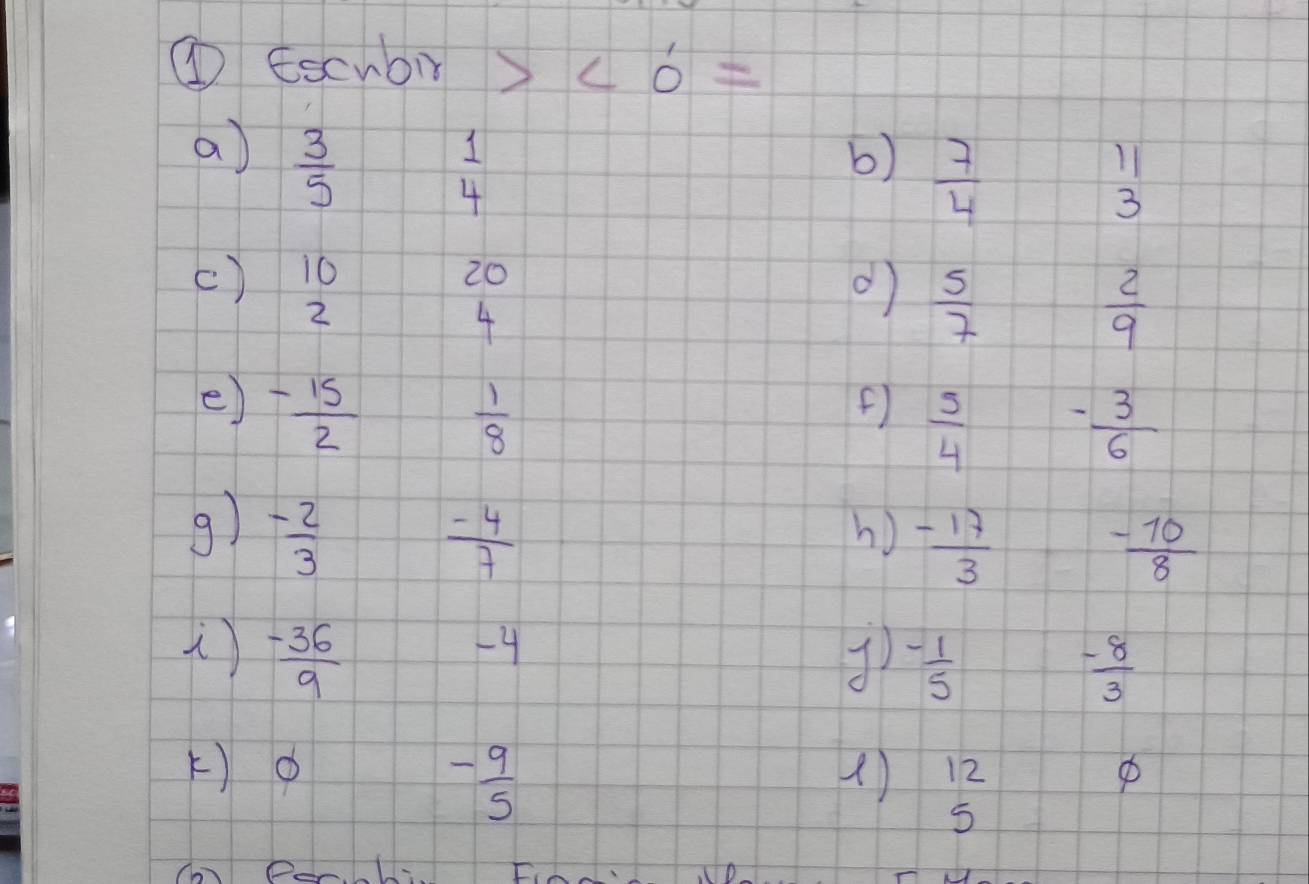 ① Escribir > < ó =
a) 3/5 1/4 b) 7/4 11/3
c) 10/2 20/4 d) 5/7 2/9
e) -15/2 1/8 f) 5/4 -3/6
g) -2/3 -4/7 h) -17/3 -10/8
i) -36/9 -4 j) -1/5 -8/3
k) ∅ -9/5 l) 12/5 ∅
② Escribir